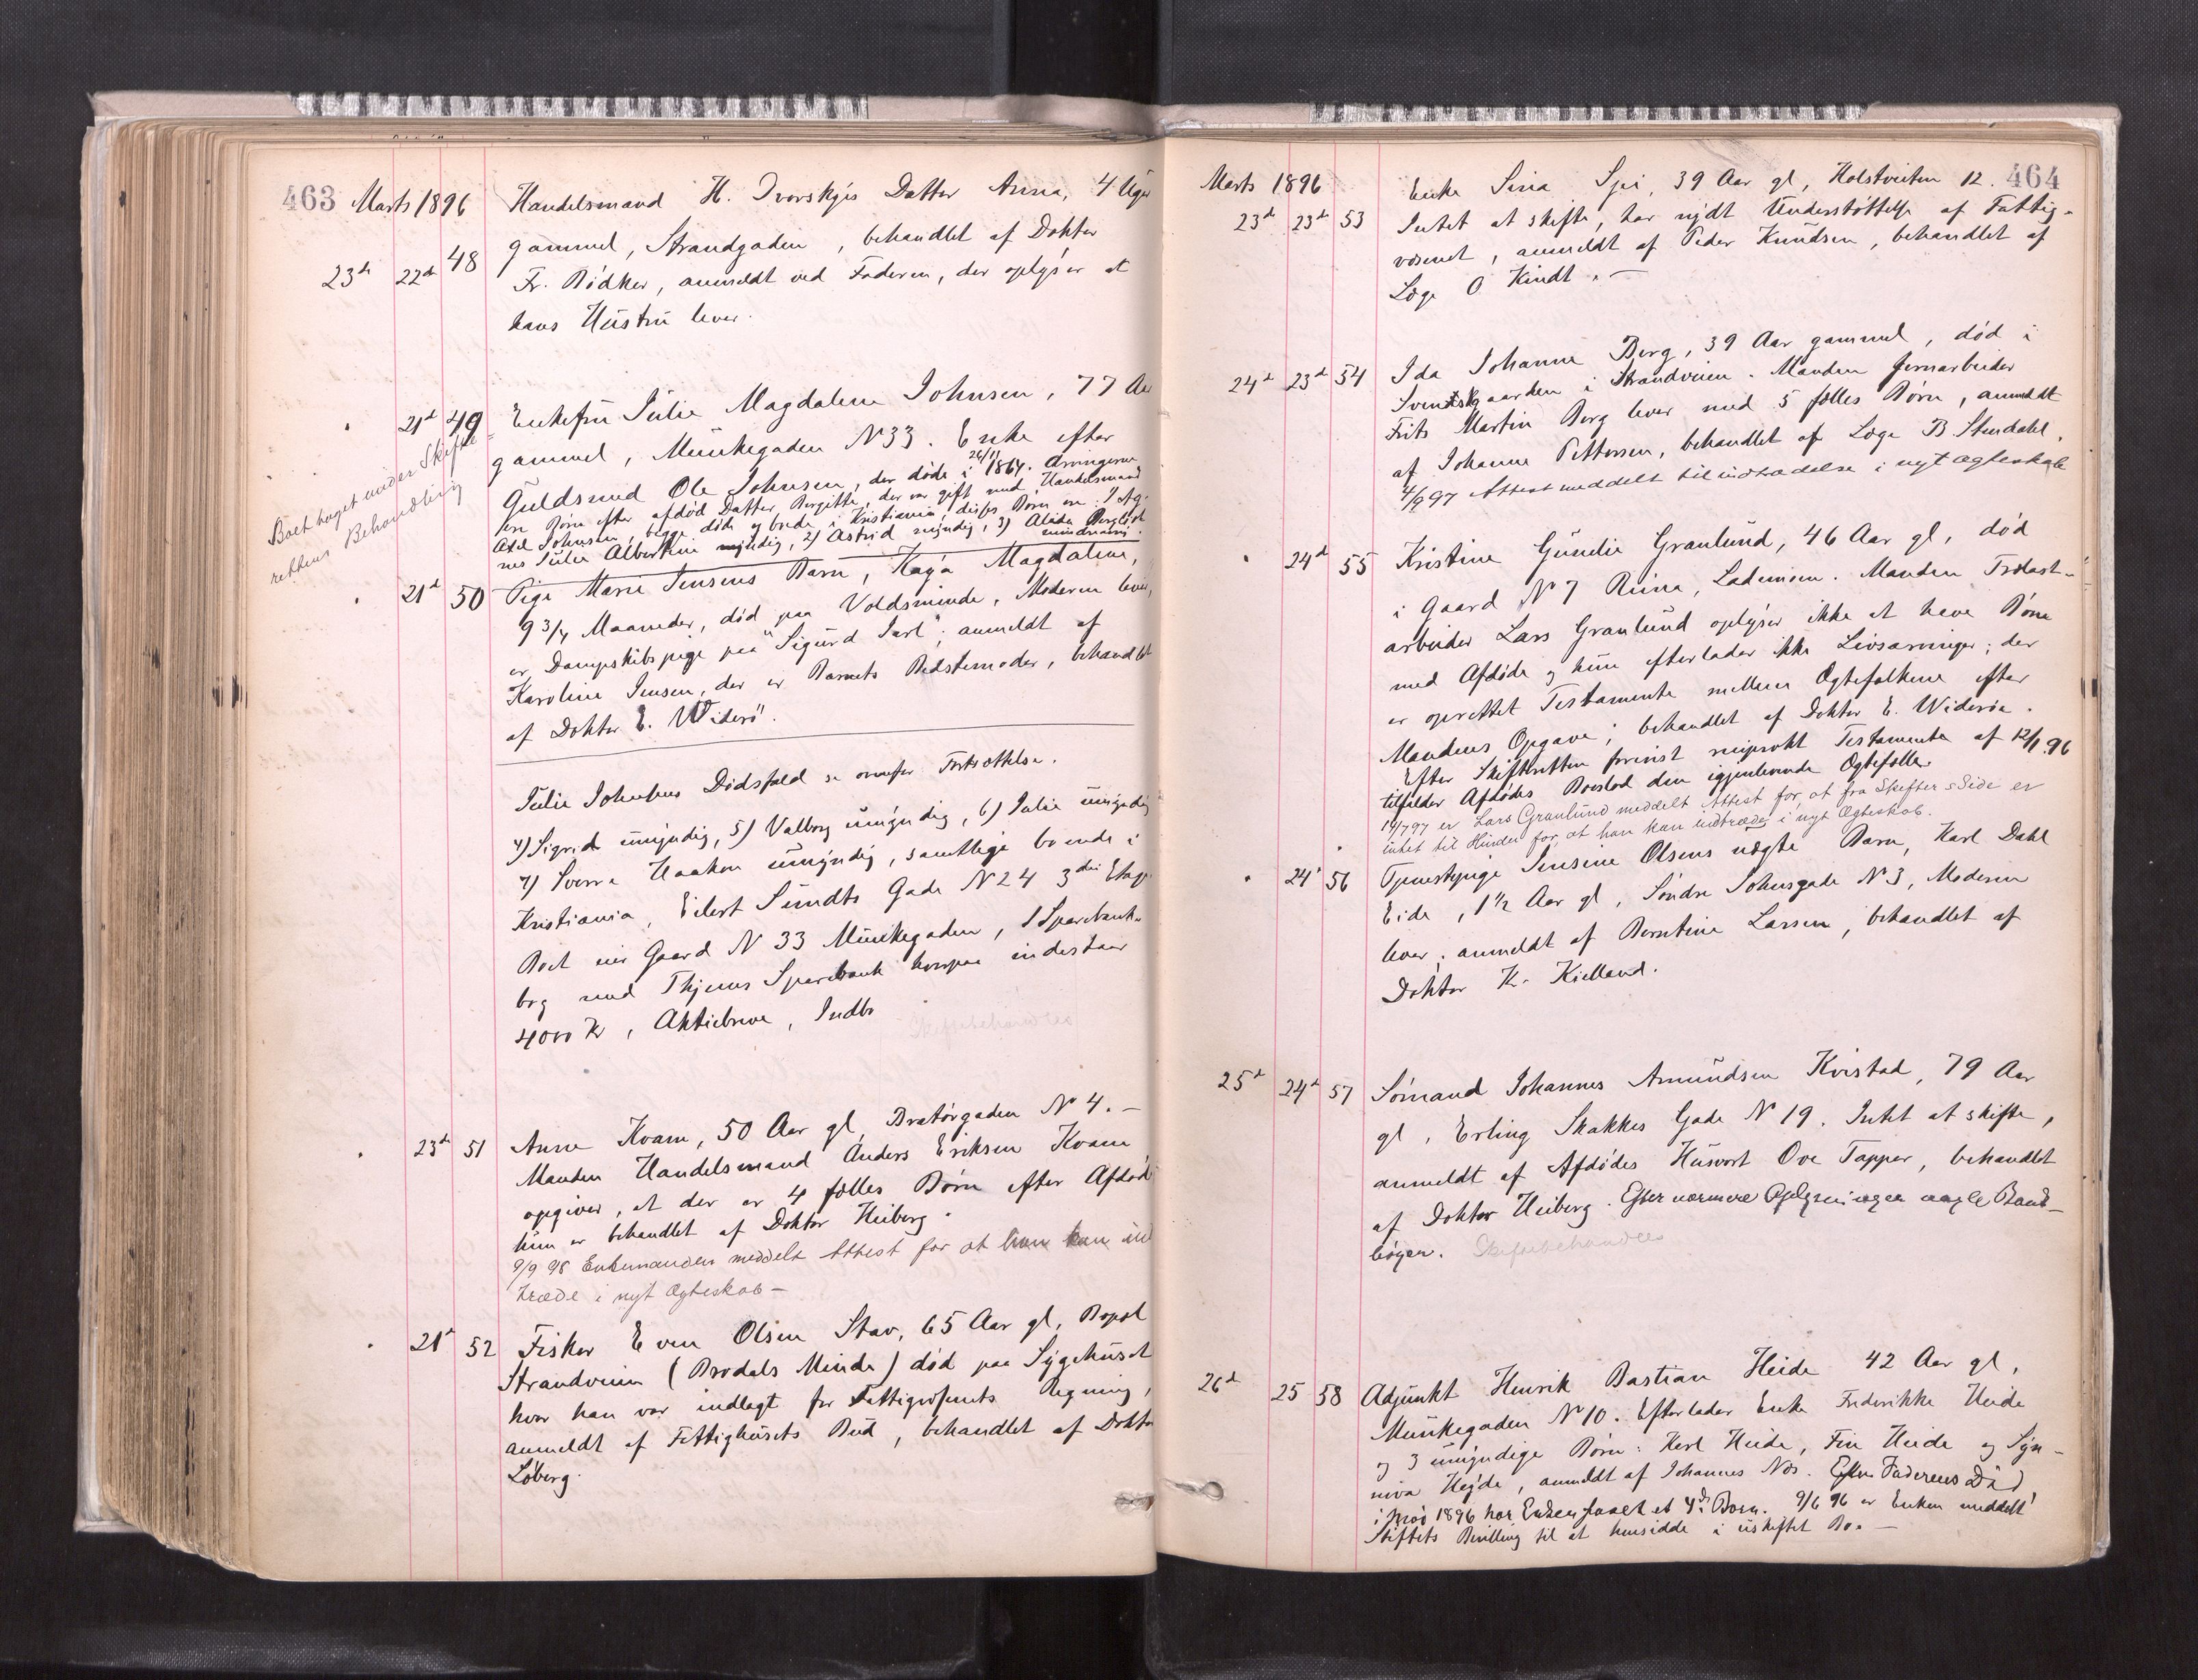 463 Marts 1896
23de 22de 48 Handelsmand H. Dvorskys Datter Anna, 4 Uger
gammel, Strandgaden, behandlet af Doktor
Fr. Bødker, anmeldt ved Faderen, der oplyser at
hans Hustru lever.
21de 49 Enkefru Julie Magdalene Johnsen, 77 Aar
gammel, Munkegaden No 33. Enke efter
Guldsmed Ole Johnsen, der døde i 26/11 1864. Arvingerne
ere Børn efter afdød Datter Bergitte, der var gift med Handelsmand
Axel Johnsen, begge døde og boede i Kristiania, disses Børn ere: 1 Ag-
nes Julie Albertine myndig, 2) Astrid myndig, 3) Alida Bergliot
mindreaarig.
Boet taget under Skifte-
rettens Behandling
21de 50 Pige Marie Jensens Barn, Kaja Magdalene,
9 3/4 Maaneder, død paa Voldsminde, Moderen lever,
er Dampskibspige paa "Sigurd Jarl", anmeldt af
Karoline Jensen, der er Barnets Bedstemoder, behandlet
af Doktor E. Widerö.
Julie Johnsens Dødsfald se ovenfor Fortsættelse.
4) Sigrid umyndig, 5) Valborg umyndig, 6) Julie umyndig
7) Sverre Haakon umyndig, samtlige boende i
Kristiania, Eilert Sundts Gade No 24 3die Etage
Boet eier Gaard No 33 Munkegaden, 1 Sparebank-
bog med Thjems Sparebank hvorpaa indestaar
4000 Kr, Aktiebreve, Indbo
Skiftebehandles
23de 51 Anne Kvam, 50 Aar gl, Bratörgaden No 4. —
Manden Handelsmand Anders Eriksen Kvam
opgiver, at der er 4 fælles Børn efter Afdøde
hun er behandlet af Doktor Heiberg.
9/9 98 Enkemanden meddelt Attest for at han kan ind
træde i nyt Ægteskab —
21de 52 Fisker Even Olsen Stav, 65 Aar gl, Bopæl
Strandveien (Brodals Minde) død paa Sygehuset
hvor han var indlagt for Fattigvæsenets Regning,
anmeldt af Fattighusets Bud, behandlet af Doktor
Löberg.
464
Marts 1896
23de 23de 53 Enke Sina Spi, 39 Aar gl, Holstveiten 12.
Intet at skifte, har nydt Understøttelse af Fattig-
væsenet, anmeldt af Peder Knudsen, behandlet af
Læge O Kindt. —
24de 23de 54 Ida Johanne Berg, 39 Aar gammel, død i
Svendskgaarden i Strandveien. Manden Jernarbeider
Frits Martin Berg lever med 5 fælles Børn, anmeldt
af Johanne Pettersen, behandlet af Læge B. Stendahl.
4/9 97 Attest meddelt til indtrædelse i nyt ægteskab
24de 55 Kristine Gunelie Granlund, 46 Aar gl, død
i Gaard No 7 Ruina, Lademoen. Manden Trælast-
arbeider Lars Granlund oplyser ikke at have Børn
med Afdøde og hun efterlader ikke Livsarvinger; der
er oprettet Testamente mellem Ægtefolkene efter
Mandens Opgave; behandlet af Doktor E. Wideröe.
Efter Skifteretten forevist reciprokt Testamente af 12/1 96
tilfalder Afdødes Boeslod den igjenlevende Ægtefælle.
14/7 97 er Lars Granlund meddelt Attest for, at fra Skiftets Side er
intet til Hinder for, at han kan indtræde i nyt Ægteskab.
24de 56 Tjenestepige Jensine Olsens uægte Barn, Karl Dahl
Eide, 1 1/2 Aar gl, Søndre Johnsgade No 3, Moderen
lever; anmeldt af Berntine Larsen, behandlet af
Doktor K. Kielland.
25de 24de 57 Sömand Johannes Amundsen Kvistad, 79 Aar
gl, Erling Skakkes Gade No 19. Intet at skifte,
anmeldt af Afdødes Husvert Ove Tapper, behandlet
af Doktor Heiberg. Efter nærmere Oplysninger nogle Bank-
böger. Skiftebehandles
26de 25 58 Adjunkt Henrik Bastian Heide 42 Aar gl,
Munkegaden No 10. Efterlader Enke Frederikke Heide
og 3 umyndige Børn: Karl Heide, Fin Heide og Syn-
nøva Hejde, anmeldt af Johannes Næs. Efter Faderens Död
i Mai 1896 har Enken faaet et 4de Barn. 9/6 96 er Enken meddelt
Stiftets Bevilling til at hensidde i uskiftet Bo. —